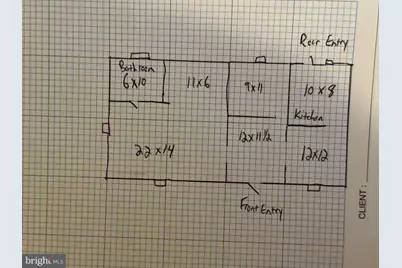 Rear Entry
Bathroom
6x10
11x6
9x11
10x8
Kitchen
12x11 1/2
22x14
12x12
Front Entry
CLIENT:
bright MLS